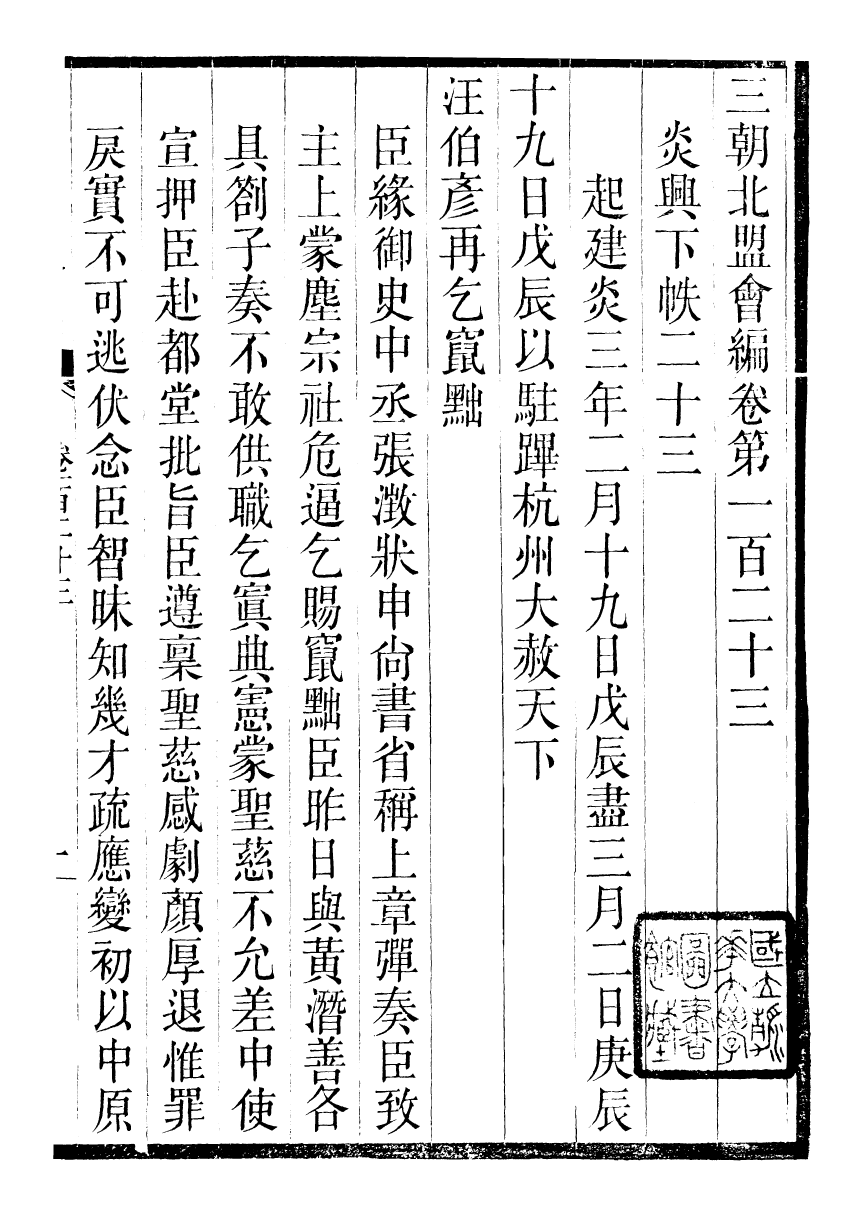 三朝北盟會編卷第一百二十三
炎興下帙二十三
起建炎三年二月十九日戊辰盡三月二日庚辰
十九日戊辰以駐蹕杭州大赦天下
汪伯彥再乞竄黜
臣緣御史中丞張澂狀申尙書省稱上章彈奏臣致
主上蒙塵宗社危逼乞賜竄黜臣昨日與黃潛善各
具劄子奏不敢供職乞寘典憲蒙聖慈不允差中使
宣押臣赴都堂批旨臣遵稟聖慈感劇顏厚退惟罪
戾實不可逃伏念臣智昧知幾才疏應變初以中原
卷一百二十三
一
國立
大學
圖書
館藏